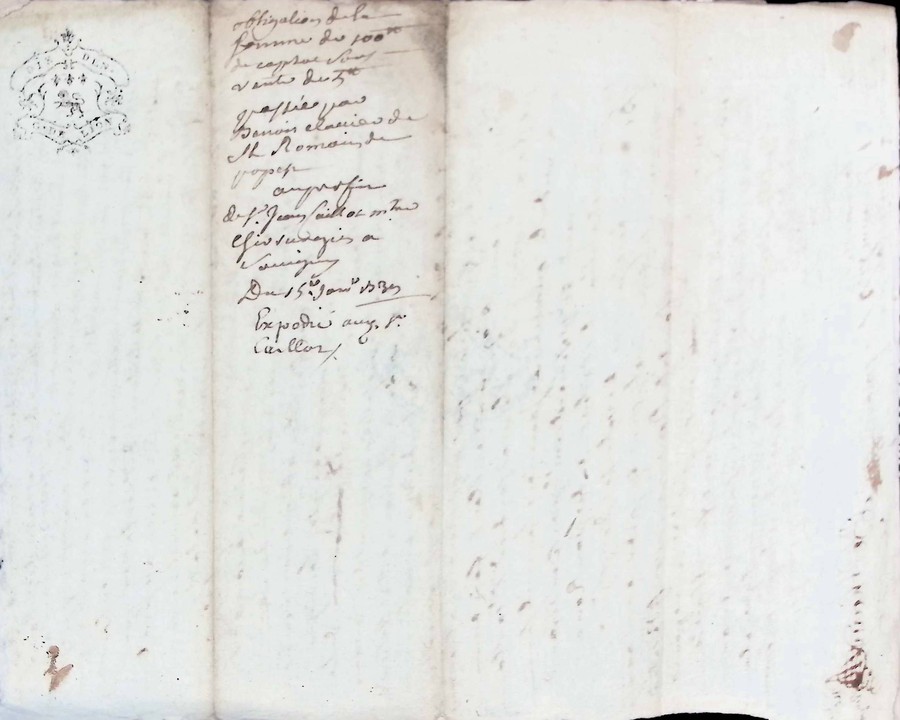 SIX DEN
G. DE LION
obligation de la
somme de 100tt
de capital sous
rente de 5tt
passée par
Benoit clavier de
St Romain de
popez
au profit
de Sr. Jean Caillot mtre
Chirurgien a
Savigny
Du 15e Janv
Expedié aud. Sr.
Caillot